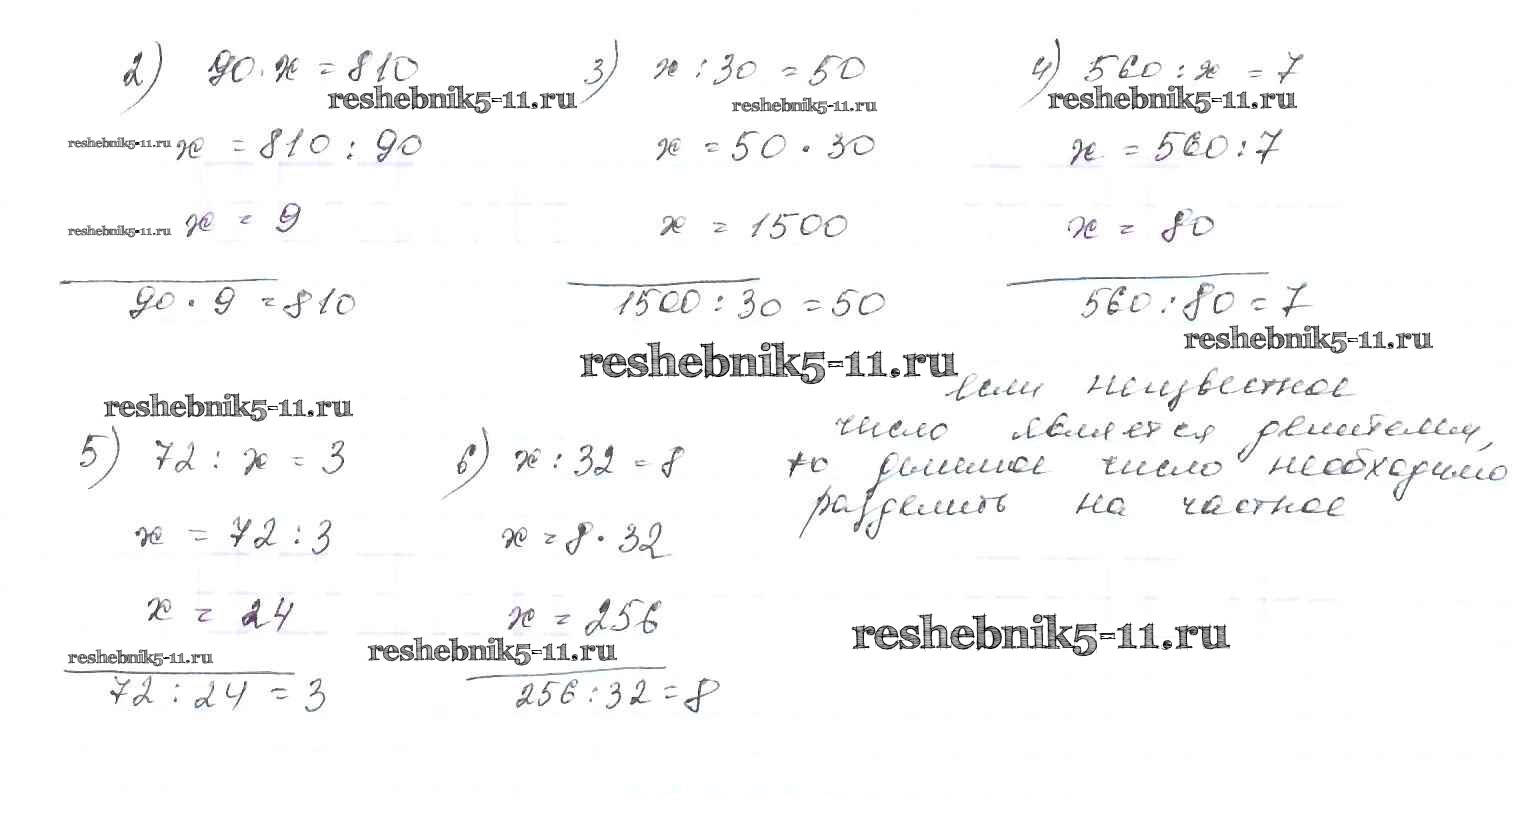 2) 90 · x = 810
reshebnik5-11.ru
reshebnik5-11.ru
x = 810 : 90
reshebnik5-11.ru
x = 9
90 · 9 = 810
3) x : 30 = 50
reshebnik5-11.ru
x = 50 · 30
x = 1500
1500 : 30 = 50
4) 560 : x = 7
reshebnik5-11.ru
x = 560 : 7
x = 80
560 : 80 = 7
reshebnik5-11.ru
reshebnik5-11.ru
если неизвестное
число является делителем,
то делимое число необходимо
разделить на частное
reshebnik5-11.ru
5) 72 : x = 3
x = 72 : 3
x = 24
reshebnik5-11.ru
72 : 24 = 3
6) x : 32 = 8
x = 8 · 32
x = 256
reshebnik5-11.ru
256 : 32 = 8
reshebnik5-11.ru